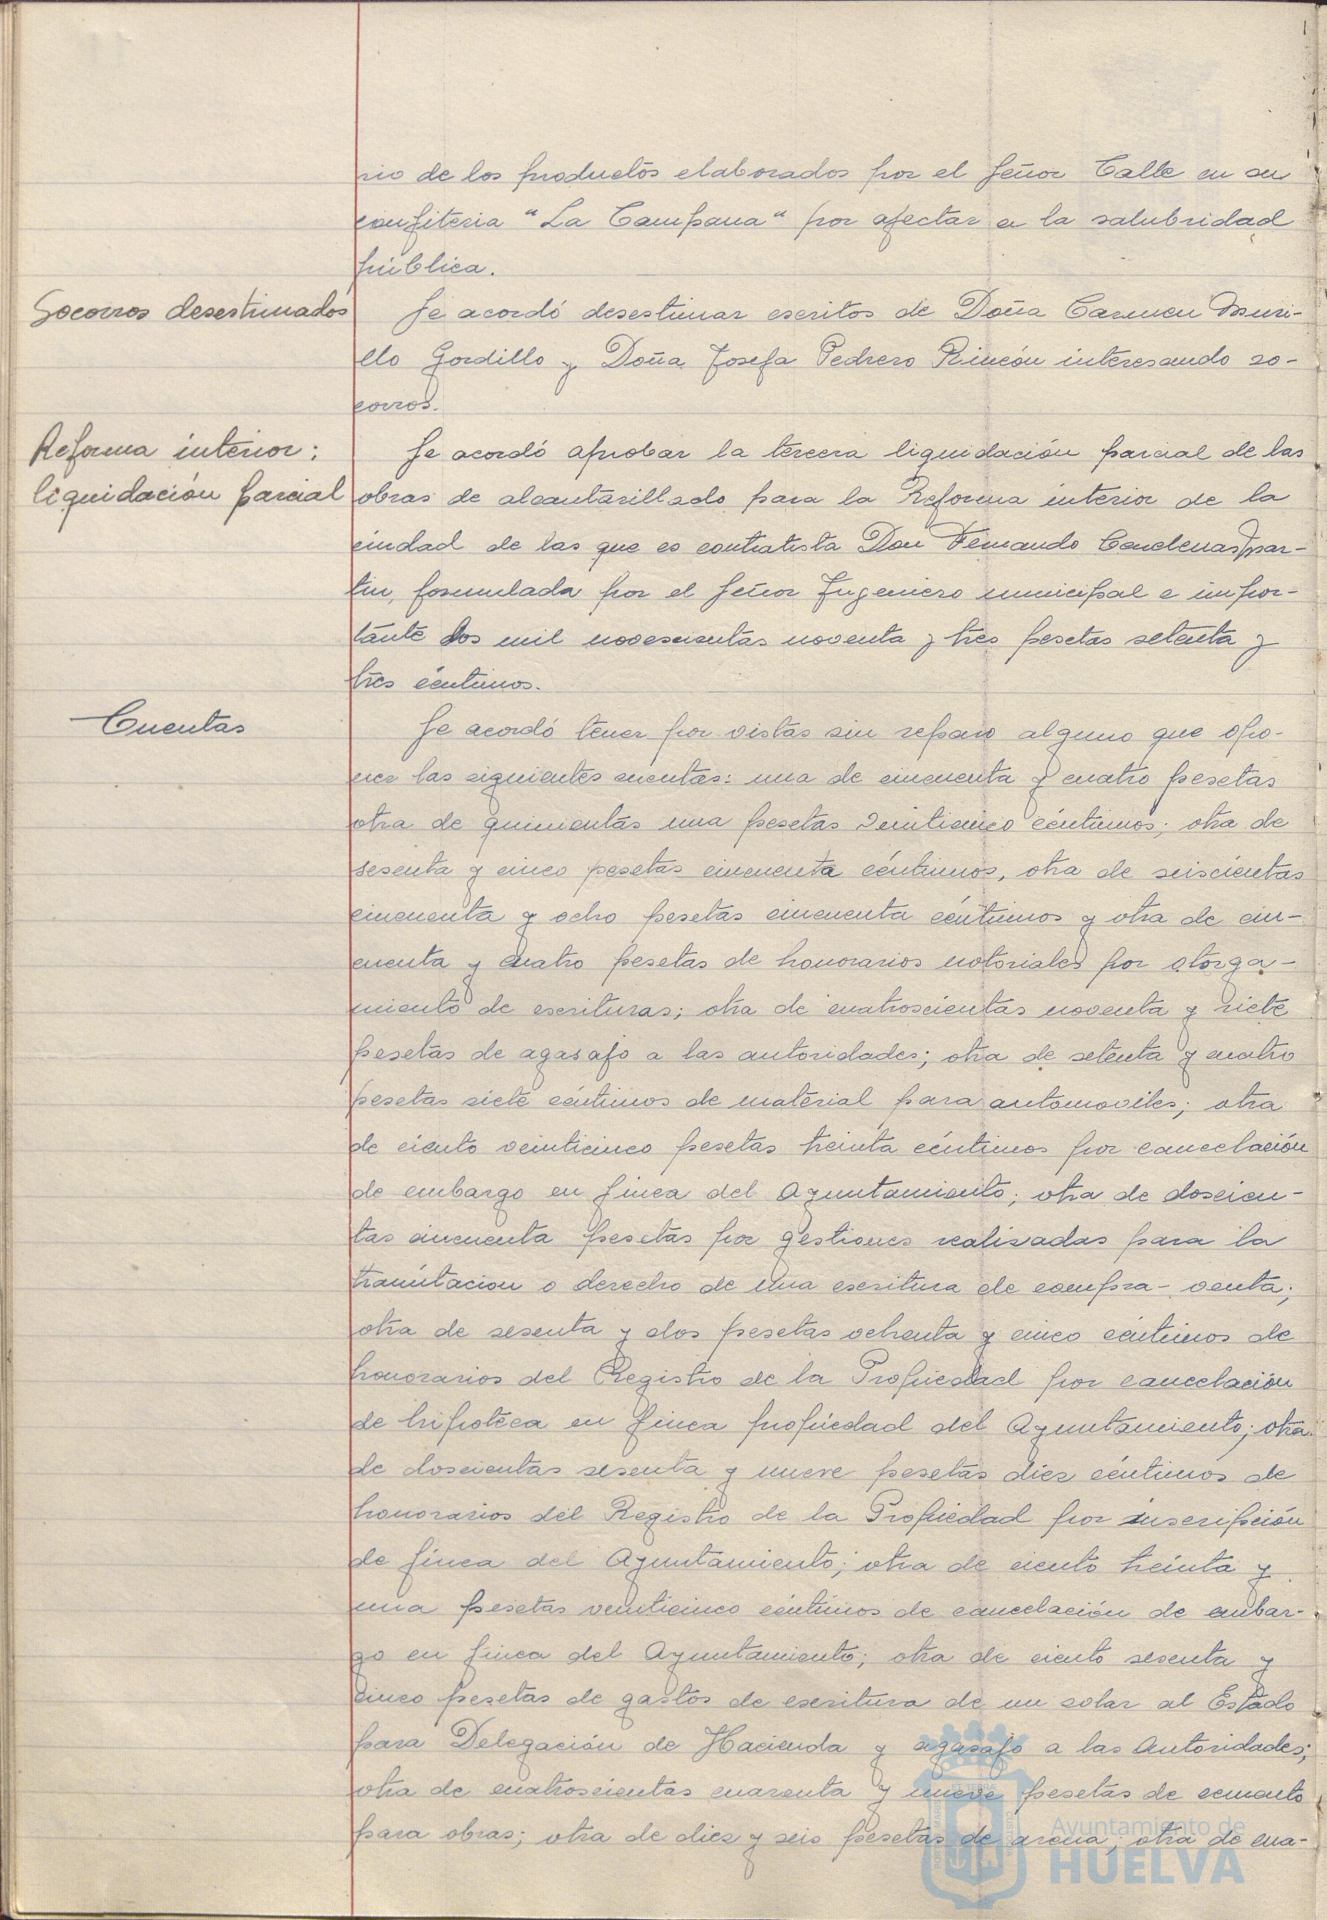 rio de los productos elaborados por el Señor Calle en su
confiteria "La Campana" por afectar a la salubridad
pública.
Socorros desestimados
Se acordó desestimar escritos de Doña Carmen Muri-
llo Gordillo y Doña Josefa Pedrero Rincón interesando so-
corros.
Reforma interior:
liquidación parcial
Se acordó aprobar la tercera liquidación parcial de las
obras de alcantarillado para la Reforma interior de la
ciudad de las que es contratista Don Fernando Cardenas Mar-
tin, formulada por el Señor Ingeniero municipal e impor-
tante dos mil novescientas noventa y tres pesetas setenta y
tres céntimos.
Cuentas
Se acordó tener por vistas sin reparo alguno que opo-
ner las siguientes cuentas: una de cincuenta y cuatro pesetas
otra de quinientas una pesetas veinticinco céntimos; otra de
sesenta y cinco pesetas cincuenta céntimos, otra de seiscientas
cincuenta y ocho pesetas cincuenta céntimos y otra de cin-
cuenta y cuatro pesetas de honorarios notoriales por otorga-
miento de escrituras; otra de cuatroscientas noventa y siete
pesetas de agasajo a las autoridades; otra de setenta y cuatro
pesetas siete céntimos de material para automoviles; otra
de ciento veinticinco pesetas treinta céntimos por cancelación
de embargo en finca del Ayuntamiento; otra de doscien-
tas cincuenta pesetas por gestiones realizadas para la
tramitacion o derecho de una escritura de compra-venta;
otra de sesenta y dos pesetas ochenta y cinco céntimos de
honorarios del Registro de la Propiedad por cancelación
de hipoteca en finca propiedad del Ayuntamiento; otra
de doscientas sesenta y nueve pesetas diez céntimos de
honorarios del Registro de la Propiedad por inscripción
de finca del Ayuntamiento; otra de ciento treinta y
una pesetas veinticinco céntimos de cancelación de embar-
go en finca del Ayuntamiento; otra de ciento sesenta y
cinco pesetas de gastos de escritura de un solar al Estado
para Delegación de Hacienda y agasajo a las Autoridades;
otra de cuatroscientas cuarenta y nueve pesetas de cemento
para obras; otra de diez y seis pesetas de arena; otra de cua-
Ayuntamiento de
HUELVA